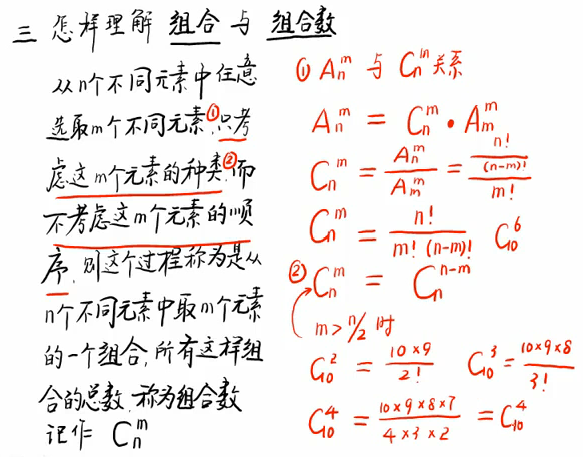 三 怎样理解 组合 与 组合数
从n个不同元素中任意
选取m个不同元素①只考
虑这m个元素的种类②而
不考虑这m个元素的顺
序,则这个过程称为是从
n个不同元素中取m个元素
的一个组合,所有这样组
合的总数,称为组合数
记作 C_n^m
① A_n^m 与 C_n^m 关系
A_n^m = C_n^m · A_m^m
C_n^m = A_n^m / A_m^m = (n! / (n-m)!) / m!
C_n^m = n! / (m! (n-m)!) C_10^6
② C_n^m = C_n^{n-m}
m > n/2 时
C_10^2 = 10×9 / 2! C_10^3 = 10×9×8 / 3!
C_10^4 = 10×9×8×7 / 4×3×2 = C_10^4